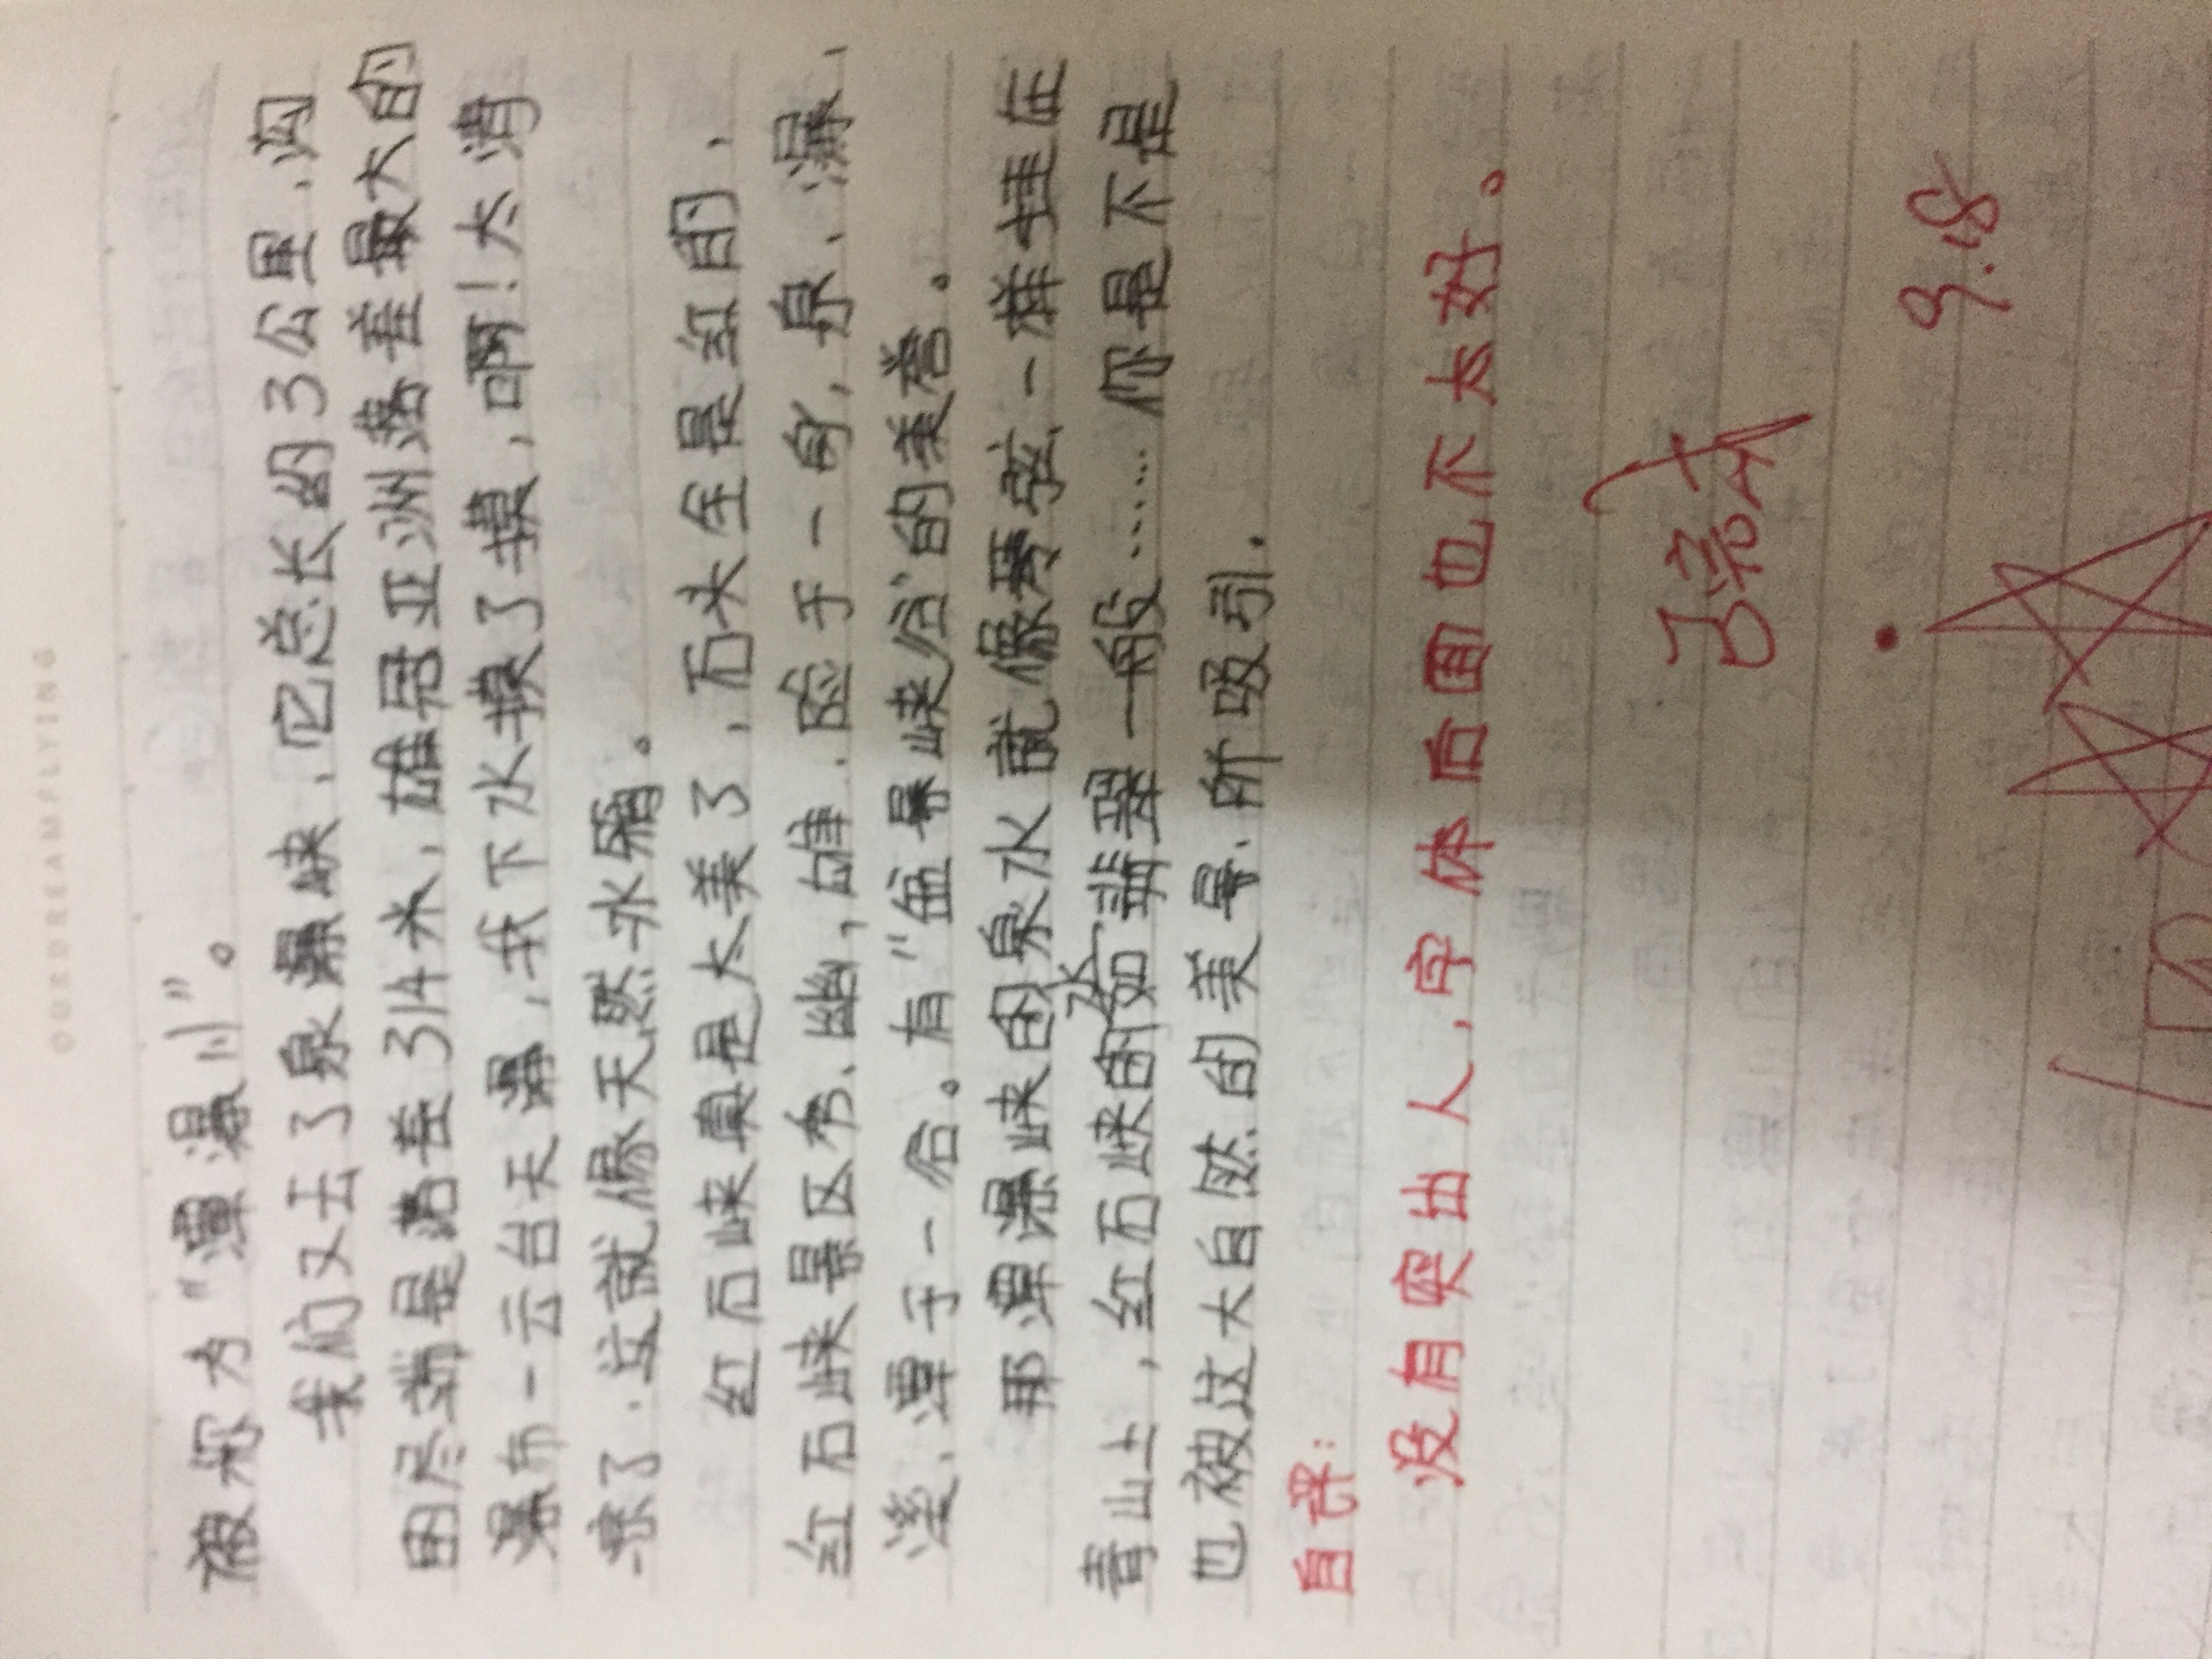 OURDREAMFLYING
被称为“潭瀑川”。
我们又去了泉瀑峡，它总长约3公里，沟
的尽端是落差314米，雄居亚洲落差最大的
瀑布—云台天瀑，我下水摸了摸，啊！太清
凉了．这就像天然冰箱。
红石峡真是太美了，石头全是红的，
红石峡景区秀、幽，雄．险于一身，泉、瀑、
溪、潭于一谷。有“盆景峡谷”的美誉。
那潭瀑峡的泉水就像琴弦一样挂在
青山上，红石峡的水如翡翠一般……你是不是
也被这大自然的美景．所吸引．
自评：
没有突出人，字体后面也不太好。
9.18